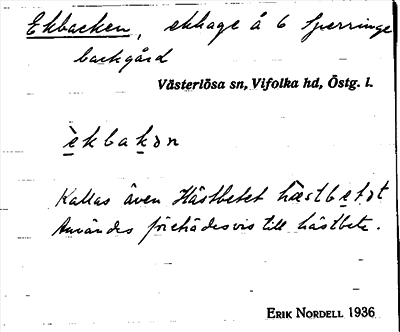 Ekbacken, ekhage å 6 Sperringe
backgård
Västerlösa sn, Vifolka hd, Östg. l.
èkbakən
Kallas även Hästbetet hæstbetət
Användes företrädesvis till hästbete.
ERIK NORDELL 1936